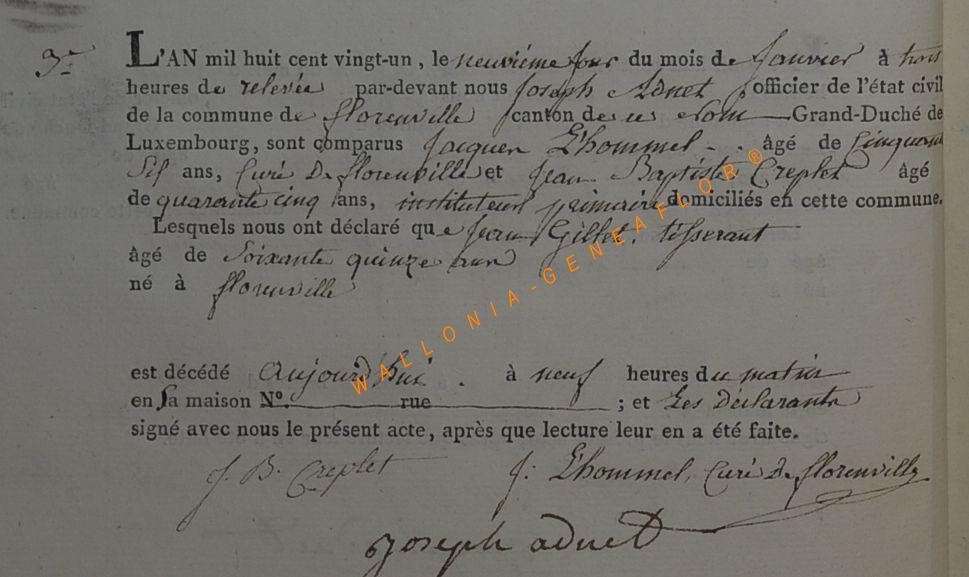 3e
L'AN mil huit cent vingt-un, le neuvième jour du mois de Janvier à trois
heures de relevée par-devant nous Joseph Adnet officier de l'état civil
de la commune de florenville canton de ce nom Grand-Duché de
Luxembourg, sont comparus Jacques Lhommel âgé de Cinquante
Six ans, Curé De florenville et Jean Baptiste Creplet âgé
de quarante cinq ans, instituteur primaire domiciliés en cette commune.
Lesquels nous ont déclaré que Jean Gillet, tisserant
âgé de Soixante quinze ans
né à florenville
est décédé aujourd'hui à neuf heures du matin
en Sa maison No. rue ; et Les Déclarants
signé avec nous le présent acte, après que lecture leur en a été faite.
J. B. Creplet J: Lhommel, Curé De florenville
Joseph adnet
WALLONIA-GENEAFLOR®